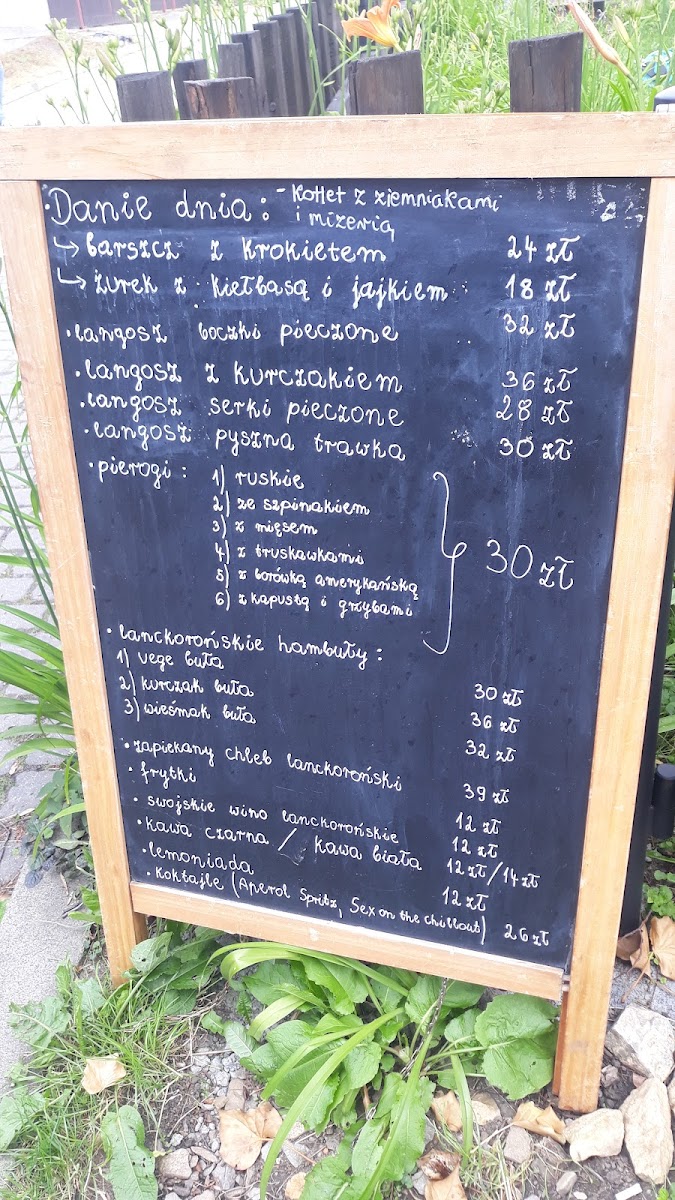 • Danie dnia: - Kotlet z ziemniakami
i mizerią
↳ barszcz z krokietem 24 zł
↳ żurek z kiełbasą i jajkiem 18 zł
• langosz boczki pieczone 32 zł
• langosz z kurczakiem 36 zł
• langosz serki pieczone 28 zł
• langosz pyszna trawka 30 zł
• pierogi: 1) ruskie
2) ze szpinakiem
3) z mięsem
4) z truskawkami
5) z borówką amerykańską
6) z kapustą i grzybami
30 zł
• lanckorońskie hambuły:
1) vege buła 30 zł
2) kurczak buła 36 zł
3) wieśmak buła 32 zł
• zapiekany chleb lanckoroński 39 zł
• frytki 12 zł
• swojskie wino lanckorońskie 12 zł
• kawa czarna / kawa biała 12 zł / 14 zł
• lemoniada 12 zł
• koktajle (Aperol Spritz, Sex on the chillout) 26 zł